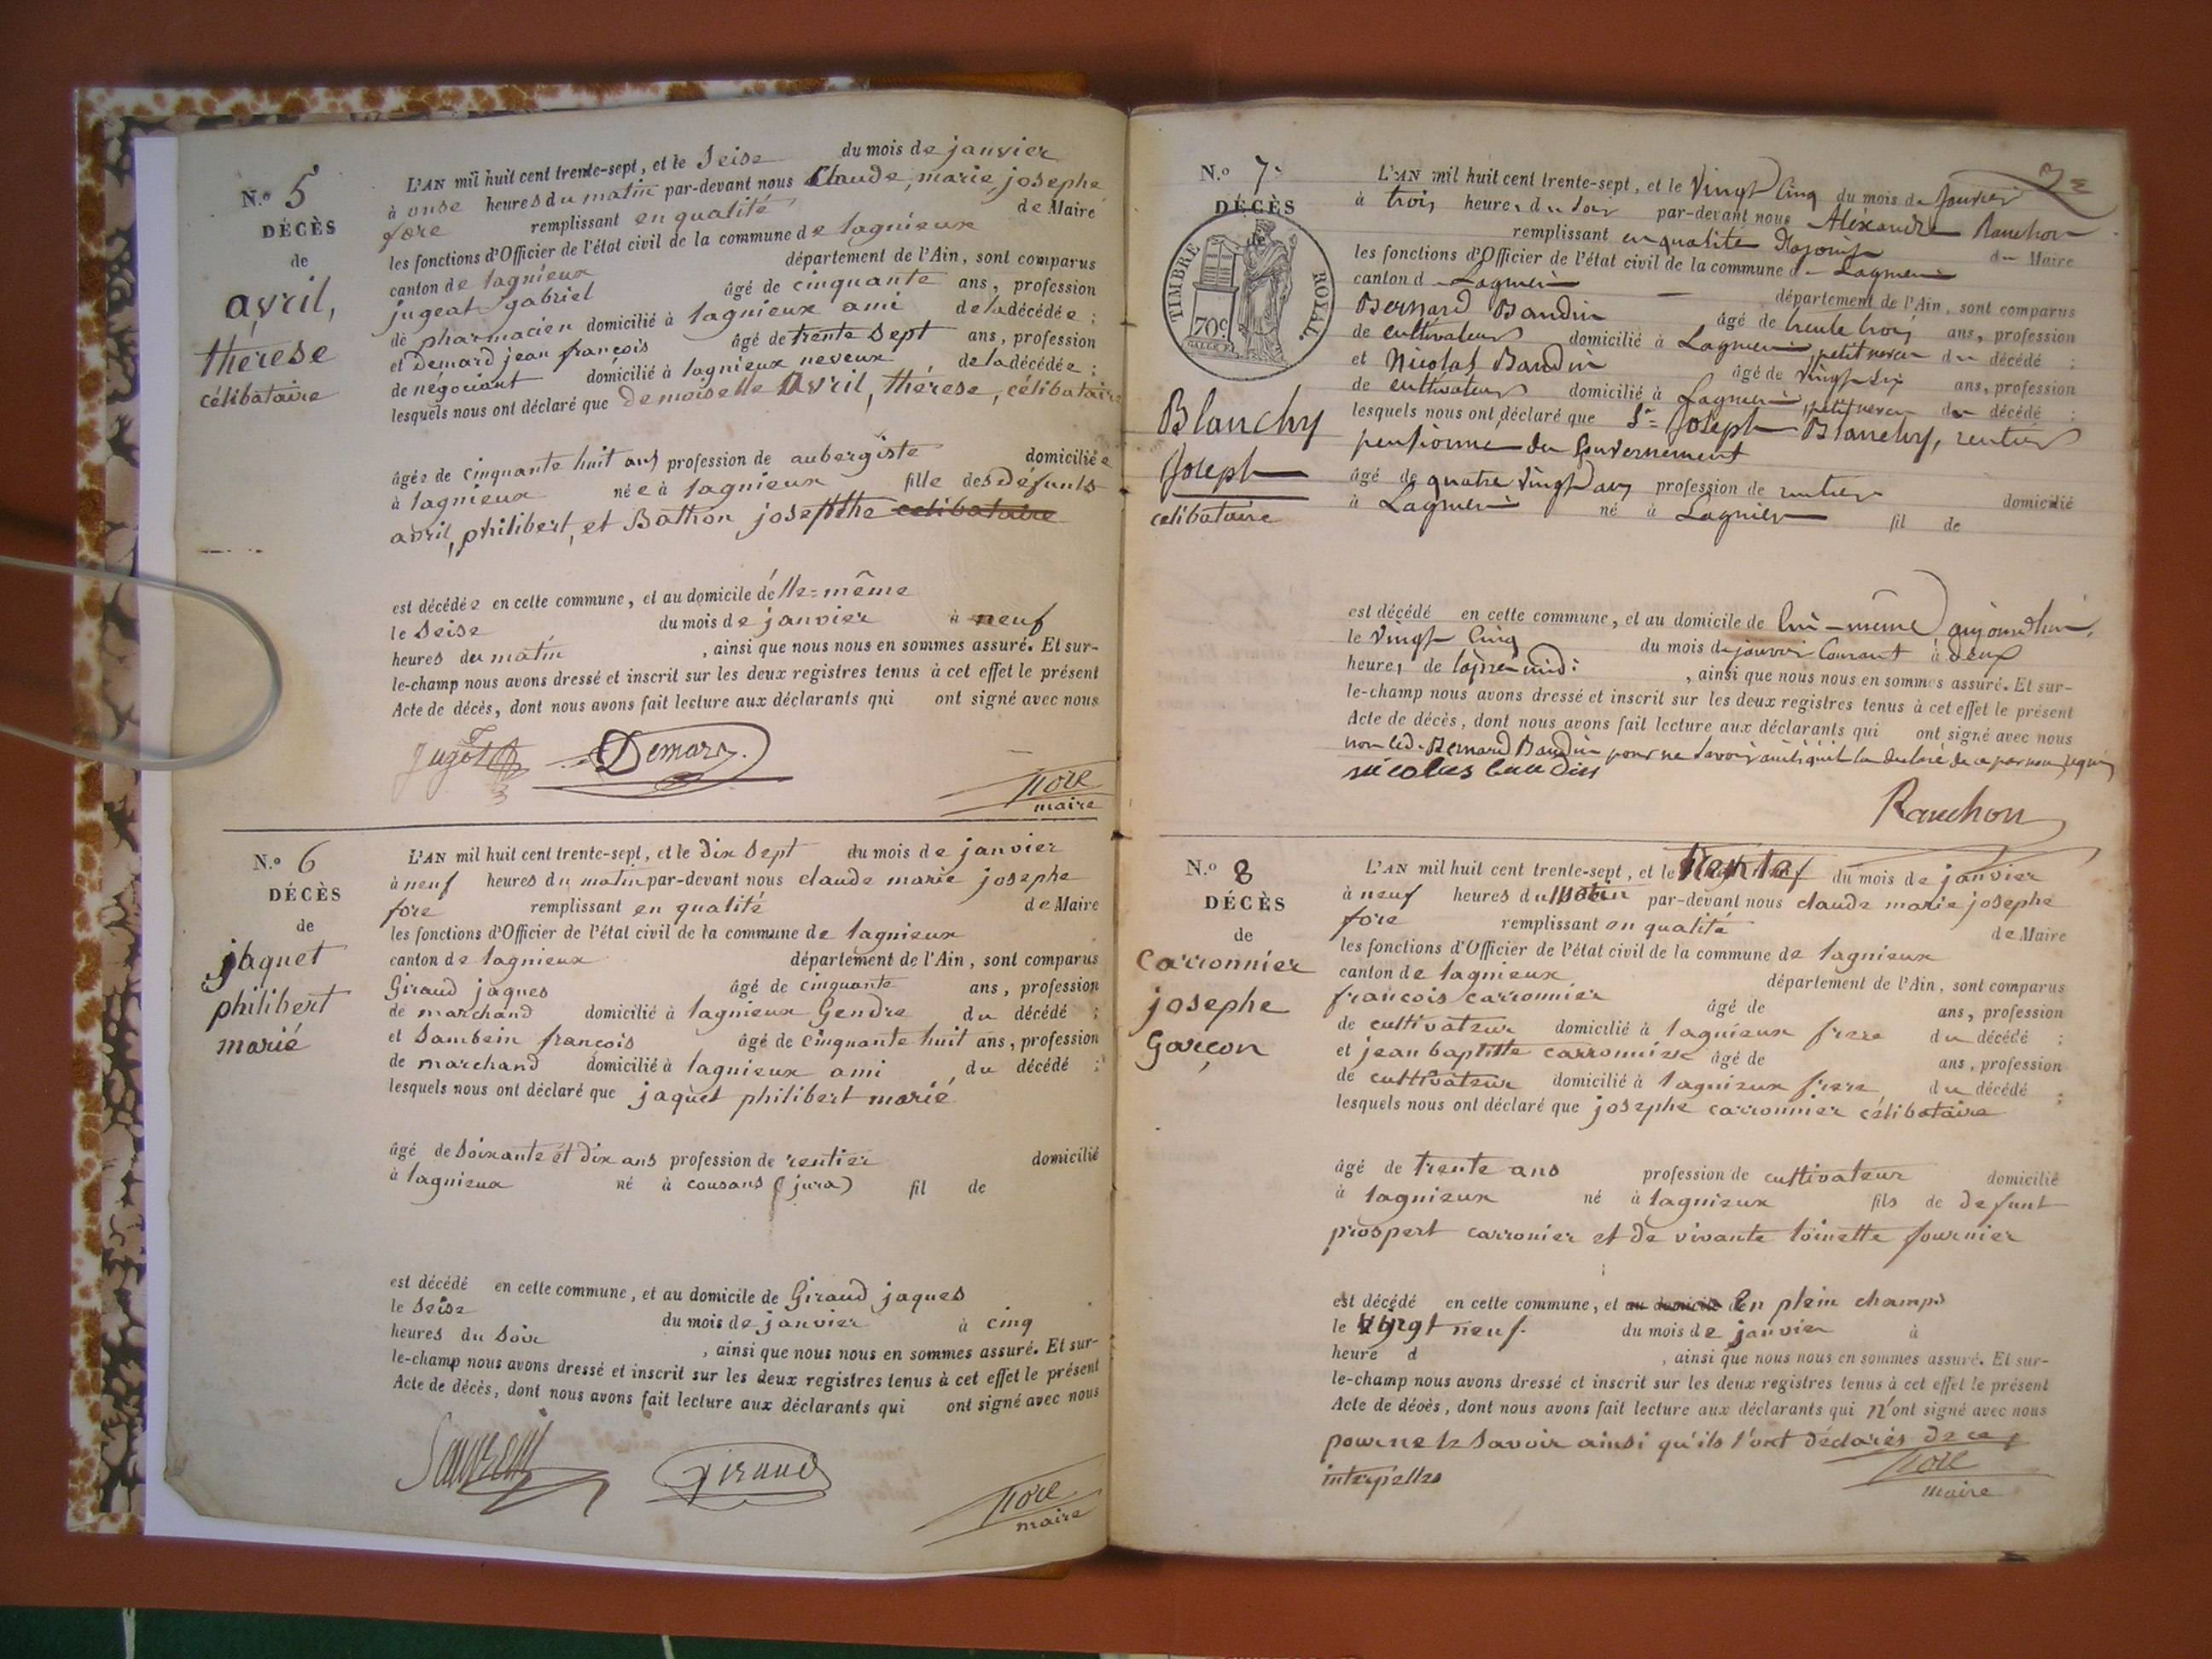 N.o 5
DÉCÈS
de
avril,
thérese
célibataire
L'AN mil huit cent trente-sept, et le Seise du mois de janvier
à onse heures du matin par-devant nous Claude, marie, josephe
fore remplissant en qualité de Maire
les fonctions d'Officier de l'état civil de la commune de lagnieux
canton de lagnieux département de l'Ain, sont comparus
jugeat gabriel âgé de cinquante ans, profession
de pharmacien domicilié à lagnieux ami de la décédée ;
et Demard jean françois âgé de trente Sept ans, profession
de négociant domicilié à lagnieux neveux de la décédée ;
lesquels nous ont déclaré que demoiselle Avril, thérese, célibataire
âgée de cinquante huit ans profession de aubergiste domiciliée
à lagnieux née à lagnieux fille des Défunts
avril, philibert, et Bathon josephthe celibataire
est décédée en cette commune, et au domicile de élle=même
le Seise du mois de janvier à neuf
heures du matin , ainsi que nous nous en sommes assuré. Et sur-
le-champ nous avons dressé et inscrit sur les deux registres tenus à cet effet le présent
Acte de décès, dont nous avons fait lecture aux déclarants qui ont signé avec nous
Demard
fore
maire
N.o 6
DÉCÈS
de
jaquet
philibert
marié
L'AN mil huit cent trente-sept, et le dix Sept du mois de janvier
à neuf heures du matin par-devant nous claude marie josephe
fore remplissant en qualité de Maire
les fonctions d'Officier de l'état civil de la commune de lagnieux
canton de lagnieux département de l'Ain, sont comparus
Giraud jaques âgé de cinquante ans, profession
de marchand domicilié à lagnieux Gendre du décédé ;
et Sambein francois âgé de cinquante huit ans, profession
de marchand domicilié à lagnieux ami du décédé ;
lesquels nous ont déclaré que jaquet philibert marié
âgé de Soixante et dix ans profession de rentier domicilié
à lagnieux né à cousans (jura) fil de
est décédé en cette commune, et au domicile de Giraud jaques
le Seise du mois de janvier à cinq
heures du Soir , ainsi que nous nous en sommes assuré. Et sur-
le-champ nous avons dressé et inscrit sur les deux registres tenus à cet effet le présent
Acte de décès, dont nous avons fait lecture aux déclarants qui ont signé avec nous
Giraud
fore
maire
N.o 7
DÉCÈS
de
TIMBRE ROYAL.
70c
Blanchy
Joseph
celibataire
L'AN mil huit cent trente-sept, et le Vingt Cinq du mois de Janvier
à trois heures du soir par-devant nous Alexandre Rauchon
remplissant en qualité d'adjoint du Maire
les fonctions d'Officier de l'état civil de la commune de Lagnieu
canton d Lagnieu département de l'Ain, sont comparus
Bernard Baudin âgé de trente trois ans, profession
de cultivateur domicilié à Lagnieu, petit neveu du décédé ;
et Nicolas Baudin âgé de vingt six ans, profession
de cultivateur domicilié à Lagnieu, petit neveu du décédé ;
lesquels nous ont déclaré que Sr Joseph Blanchy, rentier
pensionné du Gouvernement
âgé de quatre Vingt ans profession de rentier domicilié
à Lagnieu né à Lagnieu fil de
est décédé en cette commune, et au domicile de lui-même aujourdhui,
le Vingt Cinq du mois de janvier Courant à deux
heures de l'après midi , ainsi que nous nous en sommes assuré. Et sur-
le-champ nous avons dressé et inscrit sur les deux registres tenus à cet effet le présent
Acte de décès, dont nous avons fait lecture aux déclarants qui ont signé avec nous
non led. Bernard Baudin pour ne Savoir ainsi qu'il l'a declaré de ce par nous requis
nicolas baudin
Rauchon
N.o 8
DÉCÈS
de
Carronnier
josephe
Garçon
L'AN mil huit cent trente-sept, et le du mois de janvier
à neuf heures du matin par-devant nous claude marie josephe
fore remplissant en qualité de Maire
les fonctions d'Officier de l'état civil de la commune de lagnieux
canton de lagnieux département de l'Ain, sont comparus
francois carronnier âgé de ans, profession
de cultivateur domicilié à lagnieux frere du décédé ;
et jean baptiste carronnier âgé de ans, profession
de cultivateur domicilié à lagnieux frere du décédé ;
lesquels nous ont déclaré que josephe carronnier célibataire
âgé de trente ans profession de cultivateur domicilié
à lagnieux né à lagnieux fils de defunt
prospert carronier et de vivante toinette fournier
est décédé en cette commune, et au domicile de en plein champs
le vingt neuf. du mois de janvier à
heure d , ainsi que nous nous en sommes assuré. Et sur-
le-champ nous avons dressé et inscrit sur les deux registres tenus à cet effet le présent
Acte de décès, dont nous avons fait lecture aux déclarants qui n'ont signé avec nous
pour ne le Savoir ainsi qu'ils l'ont déclarés de ce
interpellés
fore
maire